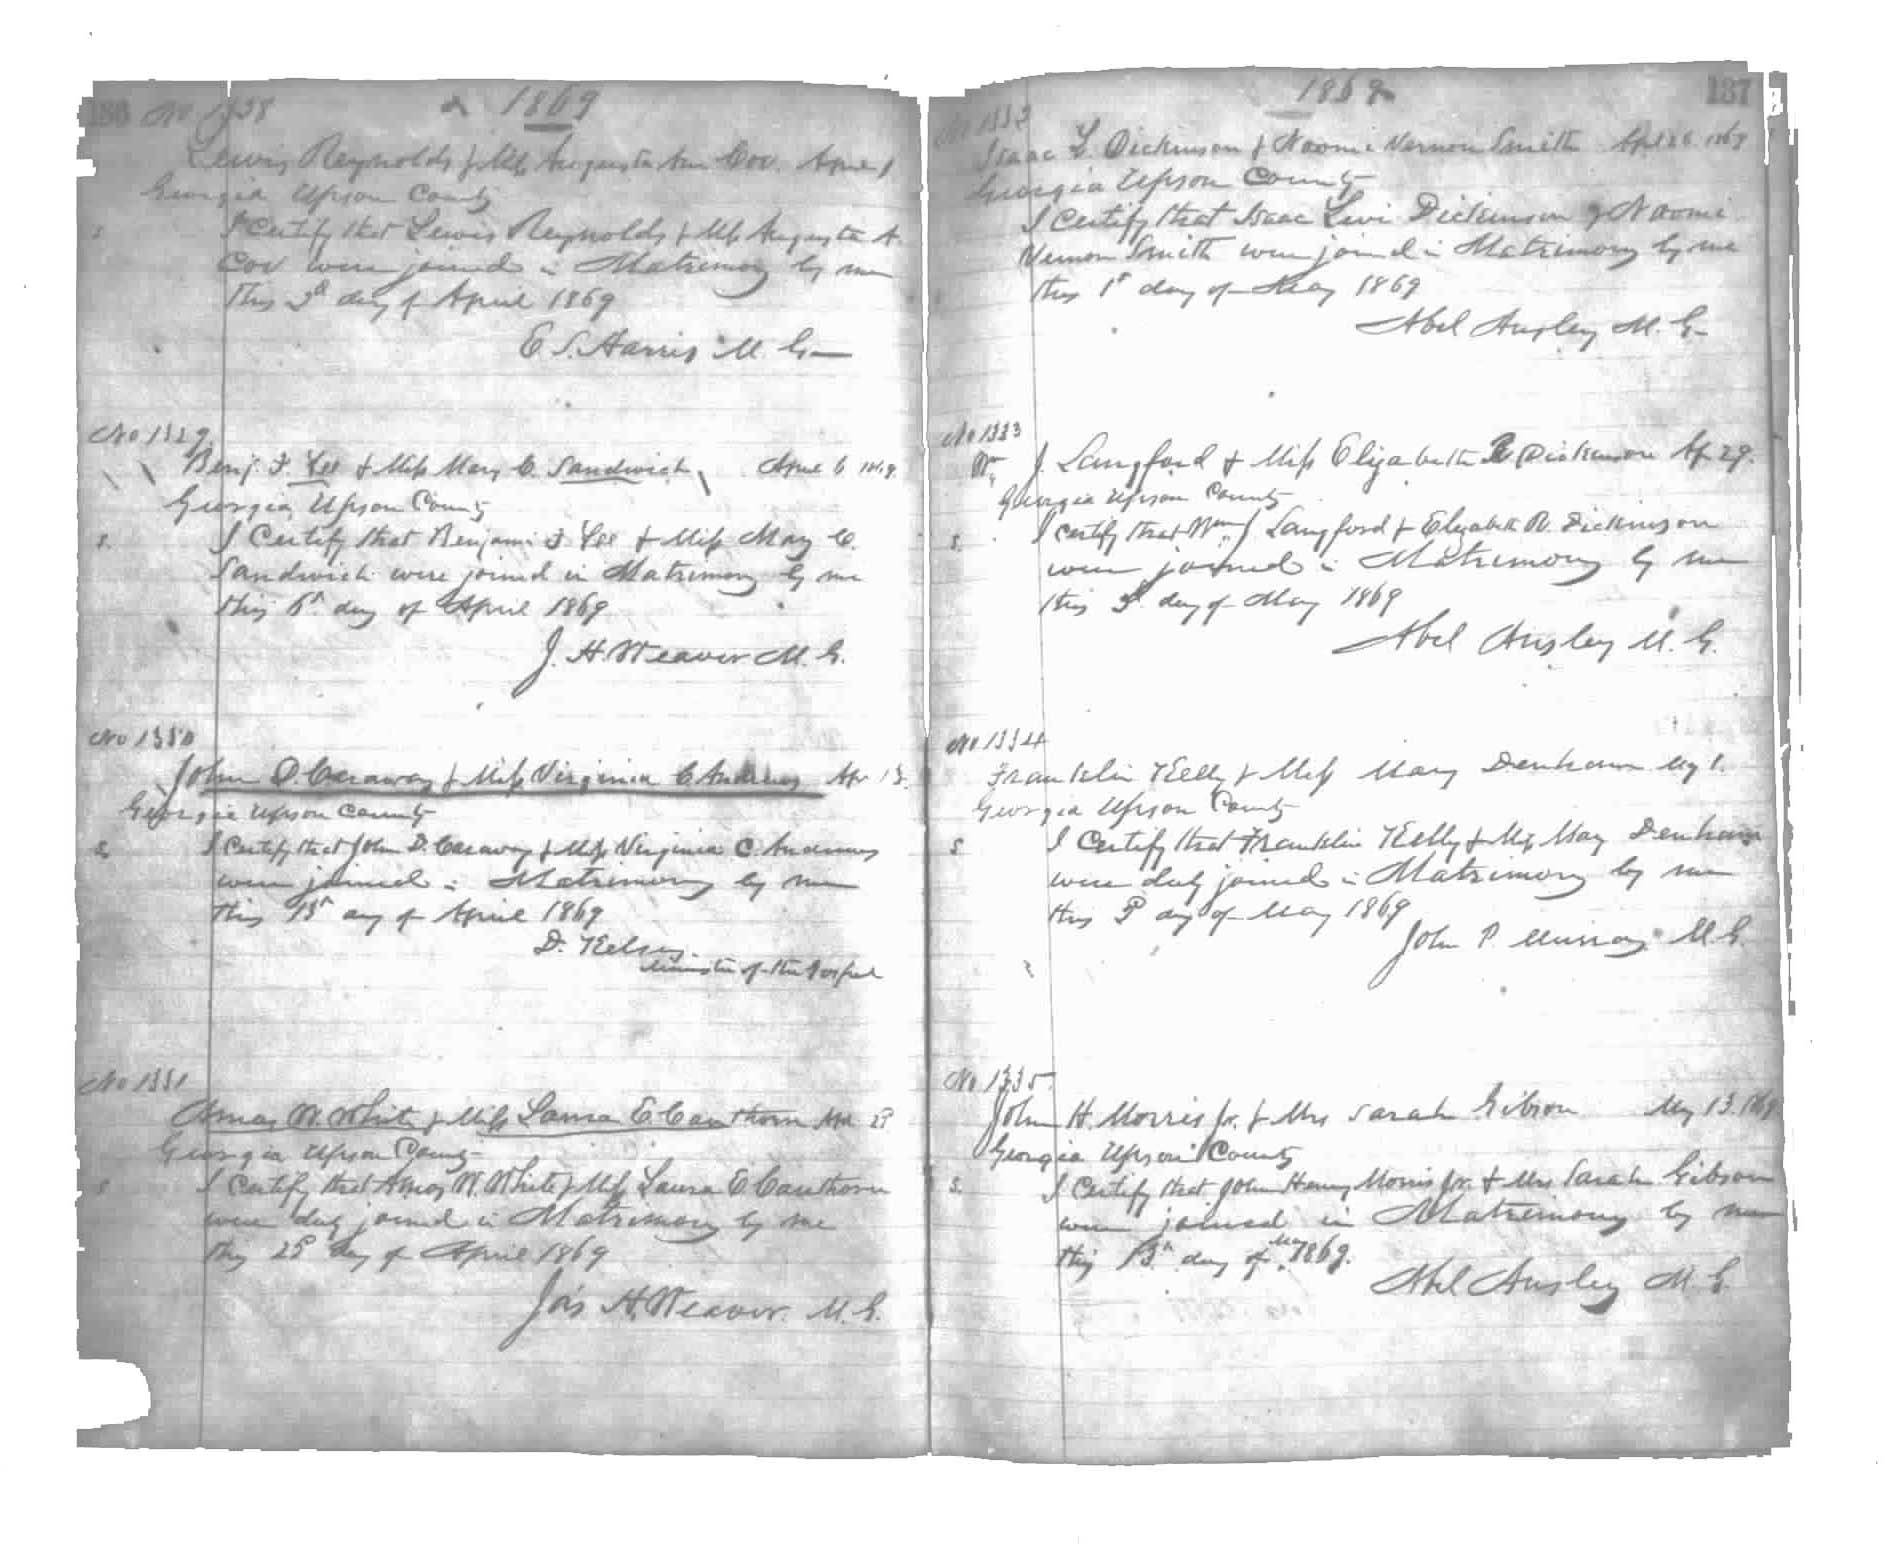 136 No 1328 1869
Lewis Reynolds & Miss Augusta Ann Cox. April 1
Georgia Upson County
S. I Certify that Lewis Reynolds & Miss Augusta A.
Cox were joined in Matrimony by me
this 3d day of April 1869
E. S. Harris M. G.
No 1329
Benj. F. Lee & Miss Mary C. Sandwich April 6 1869
Georgia Upson County
S. I Certify that Benjamin F. Lee & Miss Mary C.
Sandwich were joined in Matrimony by me
this 6th day of April 1869
J. H. Weaver M. G.
No 1330
John D. Caraway & Miss Virginia C Andrews Apr 13.
Georgia Upson County
S. I Certify that John D. Caraway & Miss Virginia C. Andrews
were joined in Matrimony by me
this 13th day of April 1869
D. Kelsey
Minister of the Gospel
No 1331
Amas W. White & Miss Laura E. Cawthorn Apl
Georgia Upson County
S I Certify that Amas W. White & Miss Laura E Cawthorn
were duly joined in Matrimony by me
this day of April 1869
Jas H. Weaver. M. G.
1869 137
No
Isaac L. Dickinson & Naomi Vernon Smith Apl 26 1869
Georgia Upson County
I Certify that Isaac Levi Dickinson & Naomi
Vernon Smith were joined in Matrimony by me
this 1st day of May 1869
Abel Ansley M. G.
No 1333
Wm J. Langford & Miss Elizabeth R Dickinson Ap 29.
Georgia Upson County
S. I Certify that Wm J Langford & Elizabeth R. Dickinson
were joined in Matrimony by me
this day of May 1869
Abel Ansley M. G.
No 1334
Franklin Kelly & Miss Mary Denham My 1.
Georgia Upson County
S I Certify that Franklin Kelly & Miss Mary Denham
were duly joined in Matrimony by me
this day of May 1869
John P. Murray M. G.
No 1335
John H. Morris Jr. & Mrs Sarah Gibson My 13. 1869
Georgia Upson County
S. I Certify that John Henry Morris Jr. & Mrs Sarah Gibson
were joined in Matrimony by me
this 13th day of May 1869.
Abel Ansley M. G.